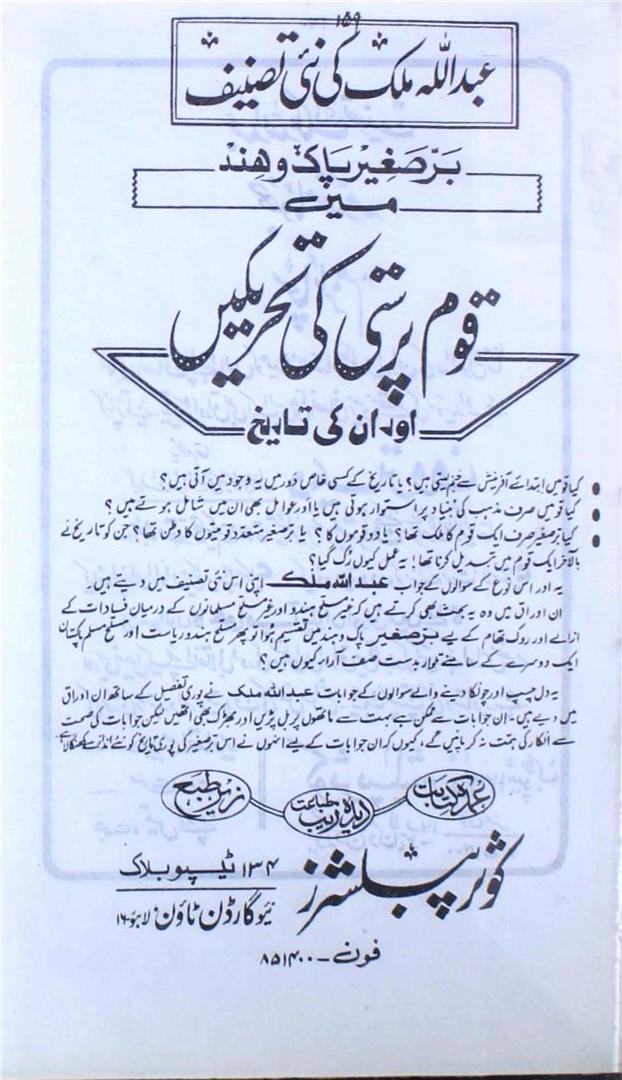 ۱۵۹
عبداللہ ملک کی نئی تصنیف
برّصغیر پاک و ہند
میں
قوم پرستی کی تحریکیں
اور ان کی تاریخ
• کیا قومیں ابتدائے آفرینش سے جنم لیتی ہیں؟ یا تاریخ کے کسی خاص دَور میں یہ وجود میں آتی ہیں؟
• کیا قومیں صرف مذہب کی بنیاد پر استوار ہوتی ہیں یا اور عوامل بھی ان میں شامل ہوتے ہیں؟
• کیا برصغیر صرف ایک قوم کا ملک تھا؟ یا دو قوموں کا؟ یا برصغیر متعدد قومیتوں کا وطن تھا؟ جن کو تاریخ نے
بالآخر ایک قوم میں تبدیل کرنا تھا! یہ عمل کیوں رُک گیا؟
یہ اور اس نوع کے سوالوں کے جواب عبداللہ ملک اپنی اس نئی تصنیف میں دیتے ہیں۔
ان اوراق میں وہ یہ بحث بھی کرتے ہیں کہ غیر مسلح ہندو اور غیر مسلح مسلمانوں کے درمیان فسادات کے
ازالے اور روک تھام کے لیے برّصغیر پاک و ہند میں تقسیم ہوا تو پھر مسلح ہندو ریاست اور مسلح مسلم پاکستان
ایک دوسرے کے سامنے تلوار بدست صف آرا کیوں ہیں؟
یہ دلچسپ اور چونکا دینے والے سوالوں کے جوابات عبداللہ ملک نے پوری تفصیل کے ساتھ ان اوراق
میں دیے ہیں۔ ان جوابات سے ممکن ہے بہت سے ماتھوں پر بل پڑیں اور بھڑک بھی اٹھیں لیکن جوابات کی صحت
سے انکار کی ہمت نہ کر پائیں گے، کیوں کہ ان جوابات کے لیے انہوں نے اس برصغیر کی پوری تاریخ کو نئے انداز سے کھنگالا ہے
عمدہ کتابت
دیدہ زیب طباعت
زیرِ طبع
کوثر پبلشرز
۱۳۴ ٹیپو بلاک
نیو گارڈن ٹاؤن، لاہور ۱۶
فون - ۸۵۱۴۰۰